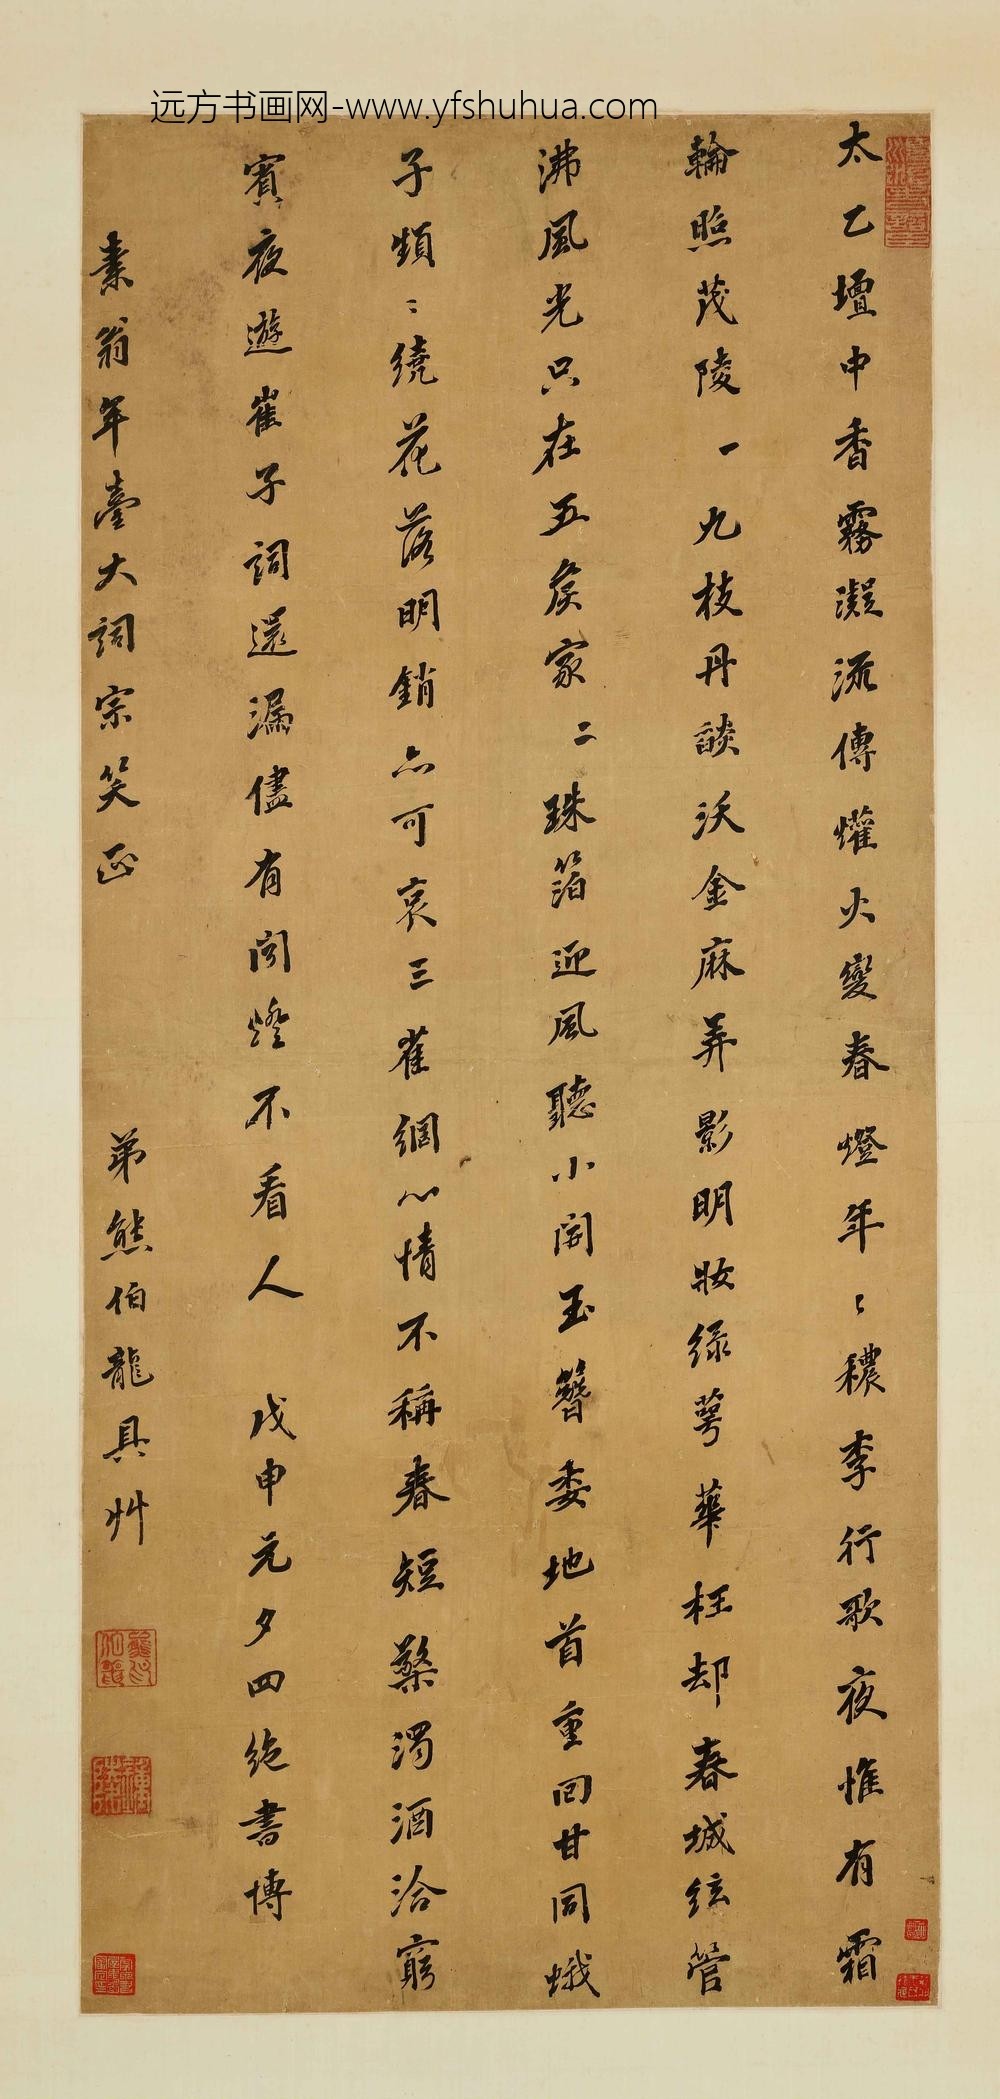 远方书画网-www.yfshuhua.com
太乙壇中香霧凝流傳爟火變春燈年〻穠李行歌夜惟有霜
輪照茂陵 一 九枝丹談沃金麻弄影明妝綠萼華枉却春城絃管
沸風光只在五侯家 二 珠箔迎風聽小開玉簪委地首重回甘同蛾
子頻〻繞花落明銷亦可哀 三 雀網心情不稱春短檠濁酒洽窮
賓夜遊崔子詞還漏儘有閑燈不看人 戊申元夕四絶書博
素翁年臺大詞宗笑正 弟熊伯龍具艸